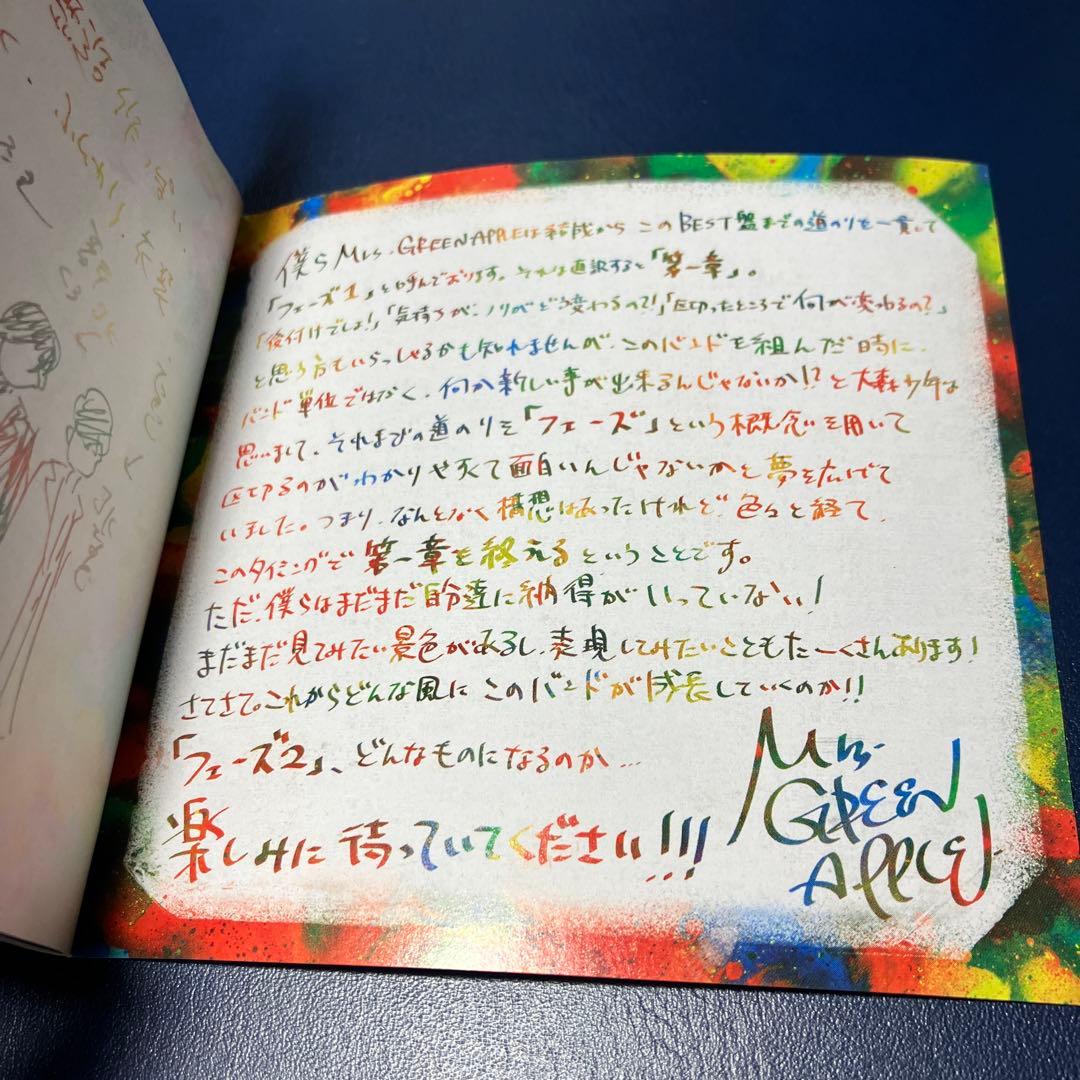 僕らMrs. GREEN APPLEは結成からこのBEST盤までの道のりを一貫して
「フェーズ1」と呼んでおります。それは直訳すると「第一章」。
「後付けでしょ!」「気持ちが、ノリがどう変わるの?!」「区切ったところで何が変わるの?」
と思う方ていらっしゃるかも知れませんが、このバンドを組んだ時に、
バンド単位ではなく、何か新しい事が出来るんじゃないか!?と大森少年は
思いまして、それまでの道のりを「フェーズ」という概念を用いて
区切るのがわかりやすくて面白いんじゃないかと夢を広げて
いました。つまり、なんとなく構想はあったけれど、色々と経て、
このタイミングで第一章を終えるということです。
ただ、僕らはまだまだ自分達に納得がいっていない!
まだまだ見てみたい景色があるし、表現してみたいこともたーくさんあります!
さてさて。これからどんな風にこのバンドが成長していくのか!!
「フェーズ2」、どんなものになるのか...
楽しみに待っていてください!!!
Mrs.
GREEN
APPLE